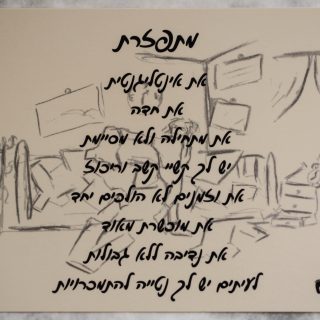 מתפזרת
את אינטליגנטית
את חדה
את מתחילה ולא מסיימת
יש לך קשיי קשב וריכוז
את וזמנים לא הולכים יחד
את מוכשרת מאוד
את נדיבה ללא גבולות
לעיתים יש לך נטייה להתמכרויות